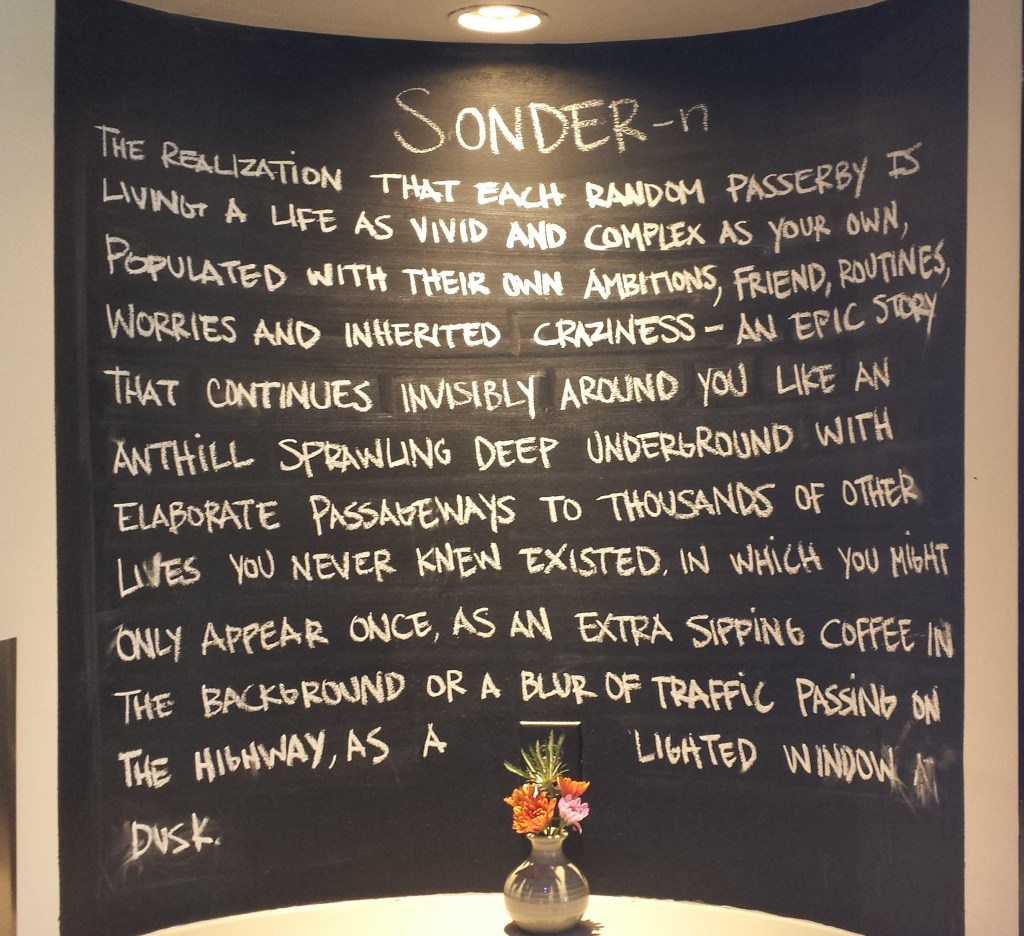 SONDER-n
THE REALIZATION THAT EACH RANDOM PASSERBY IS
LIVING A LIFE AS VIVID AND COMPLEX AS YOUR OWN,
POPULATED WITH THEIR OWN AMBITIONS, FRIEND, ROUTINES,
WORRIES AND INHERITED CRAZINESS - AN EPIC STORY
THAT CONTINUES INVISIBLY AROUND YOU LIKE AN
ANTHILL SPRAWLING DEEP UNDERGROUND WITH
ELABORATE PASSAGEWAYS TO THOUSANDS OF OTHER
LIVES YOU NEVER KNEW EXISTED. IN WHICH YOU MIGHT
ONLY APPEAR ONCE, AS AN EXTRA SIPPING COFFEE IN
THE BACKGROUND OR A BLUR OF TRAFFIC PASSING ON
THE HIGHWAY, AS A LIGHTED WINDOW AT
DUSK.